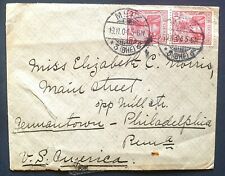 Miss Elizabeth C. Morris,
Main Street
opp Mill St.
Germantown - Philadelphia
Penna
U.S. America.